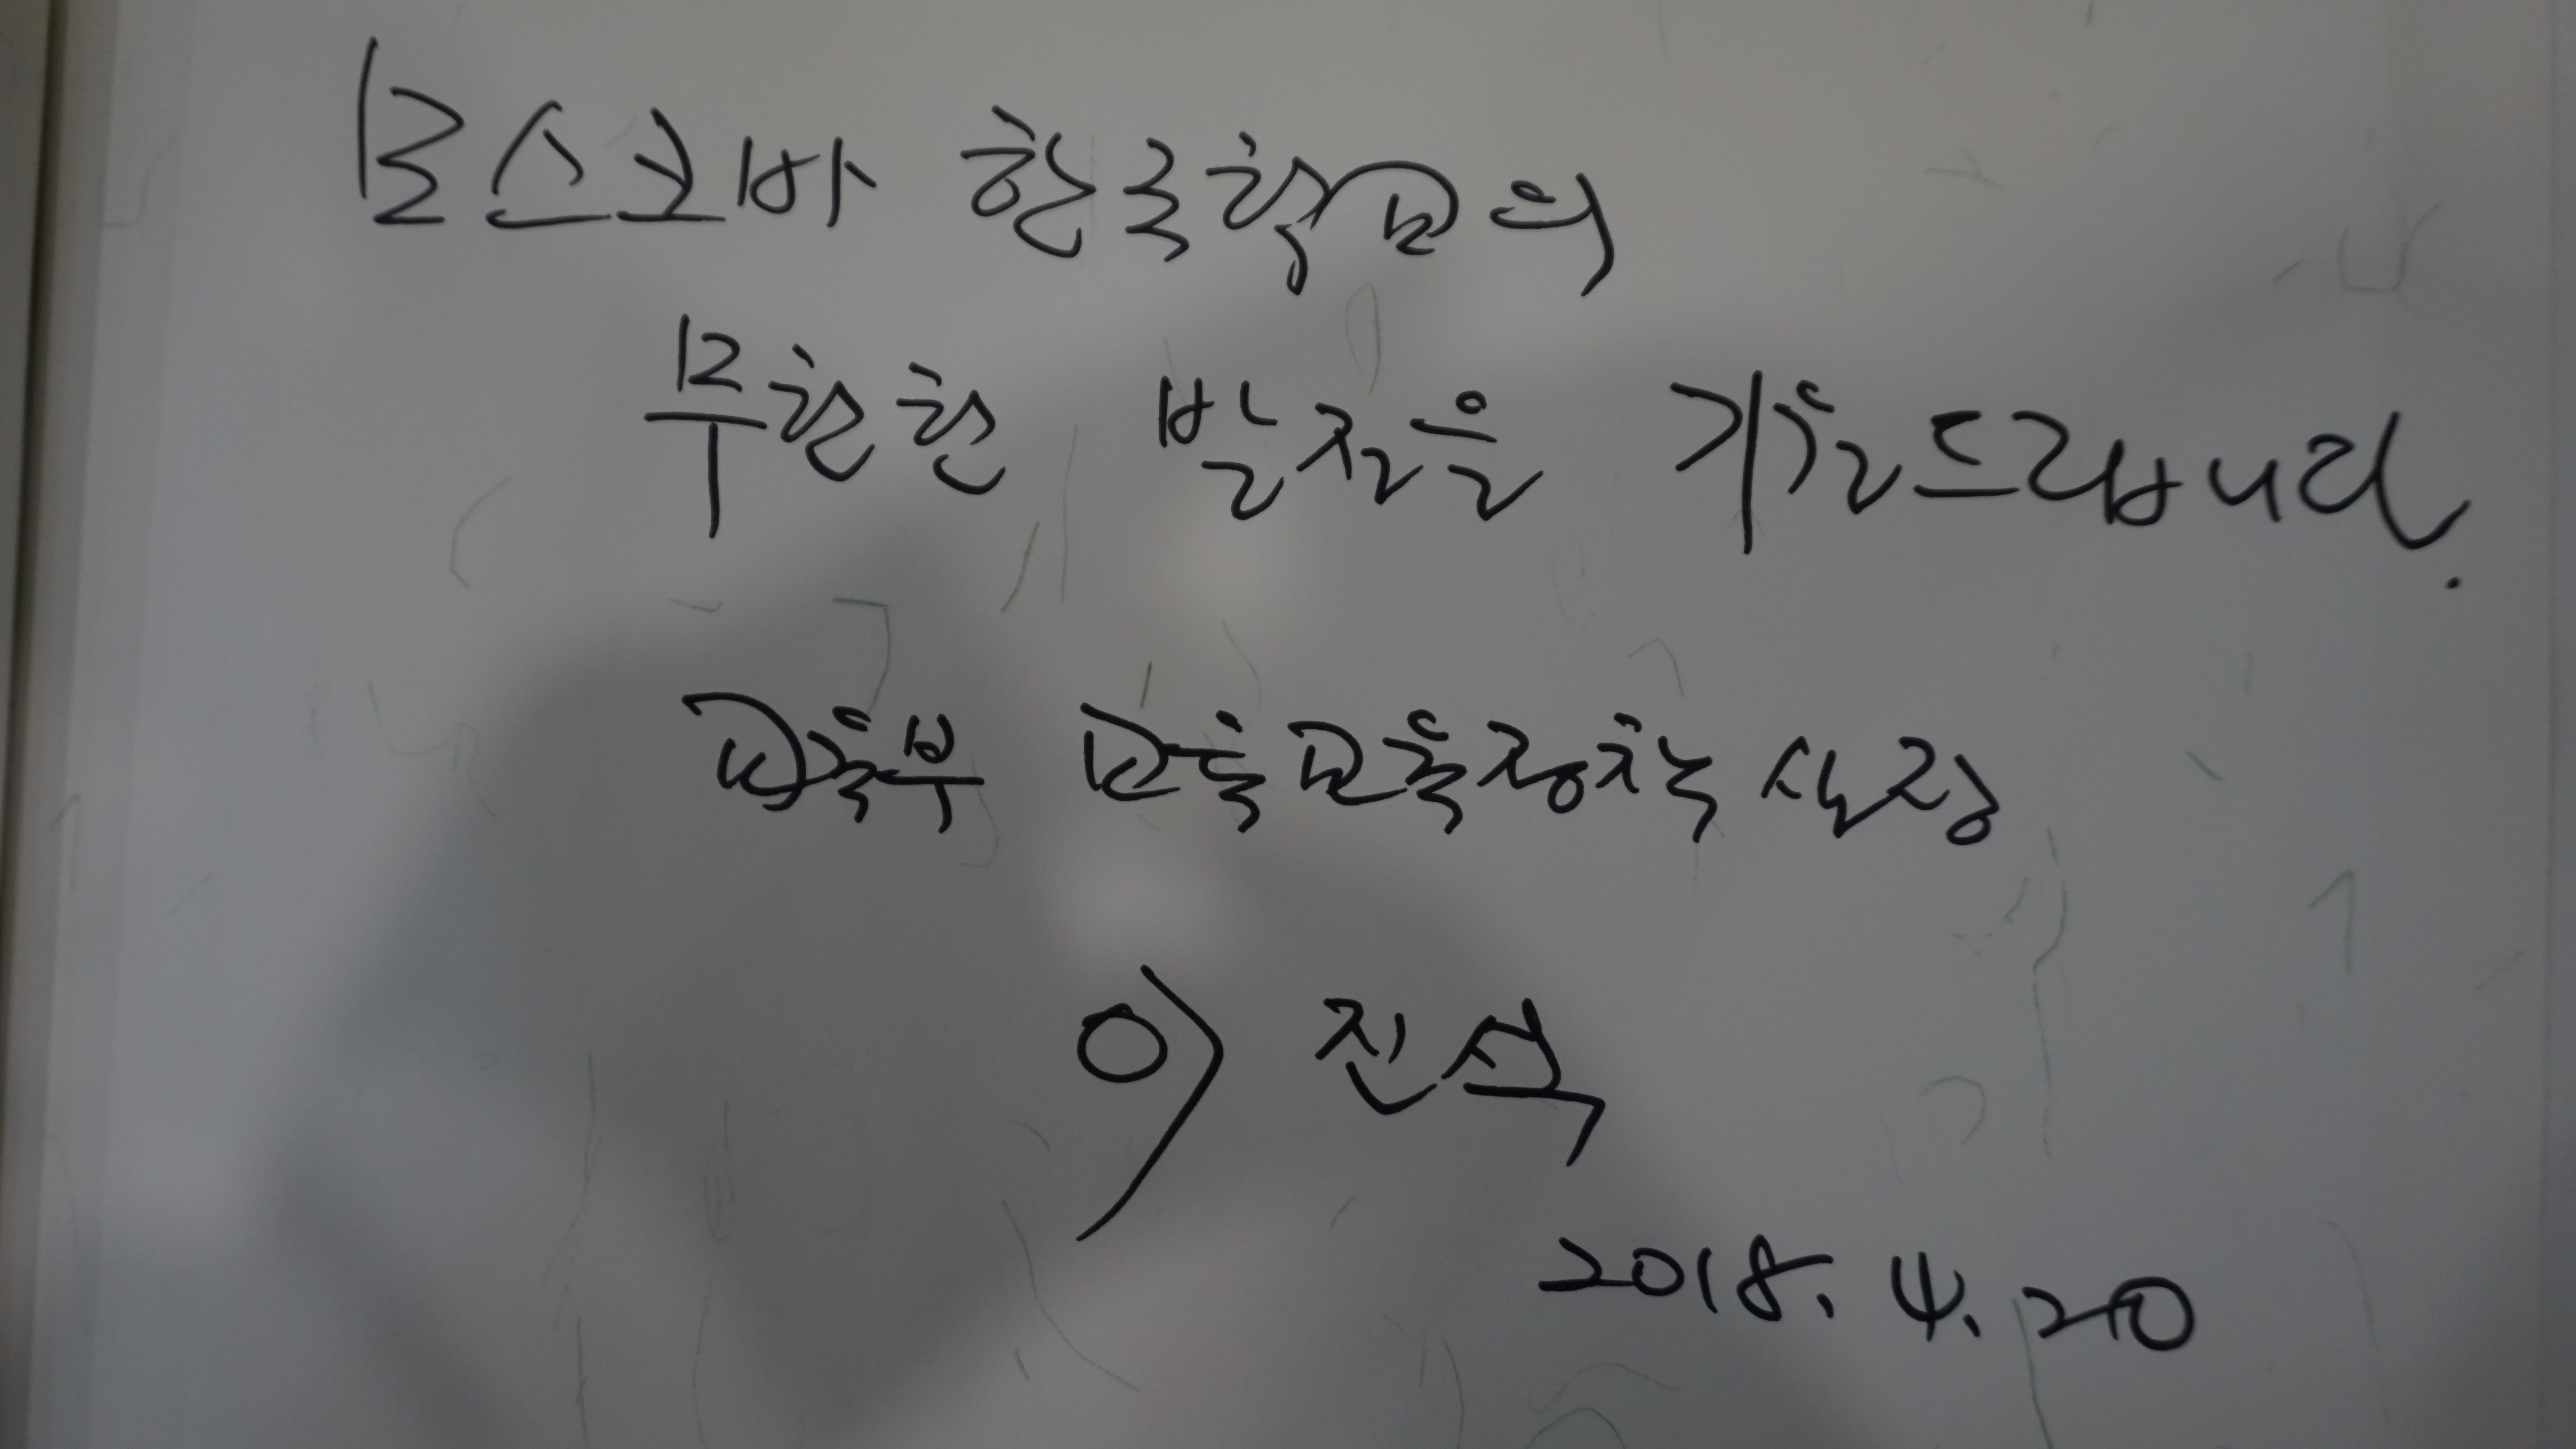 모스크바 한국학교의
무한한 발전을 기원드립니다.
교육부 교육정책실장
이진석
2018. 4. 20